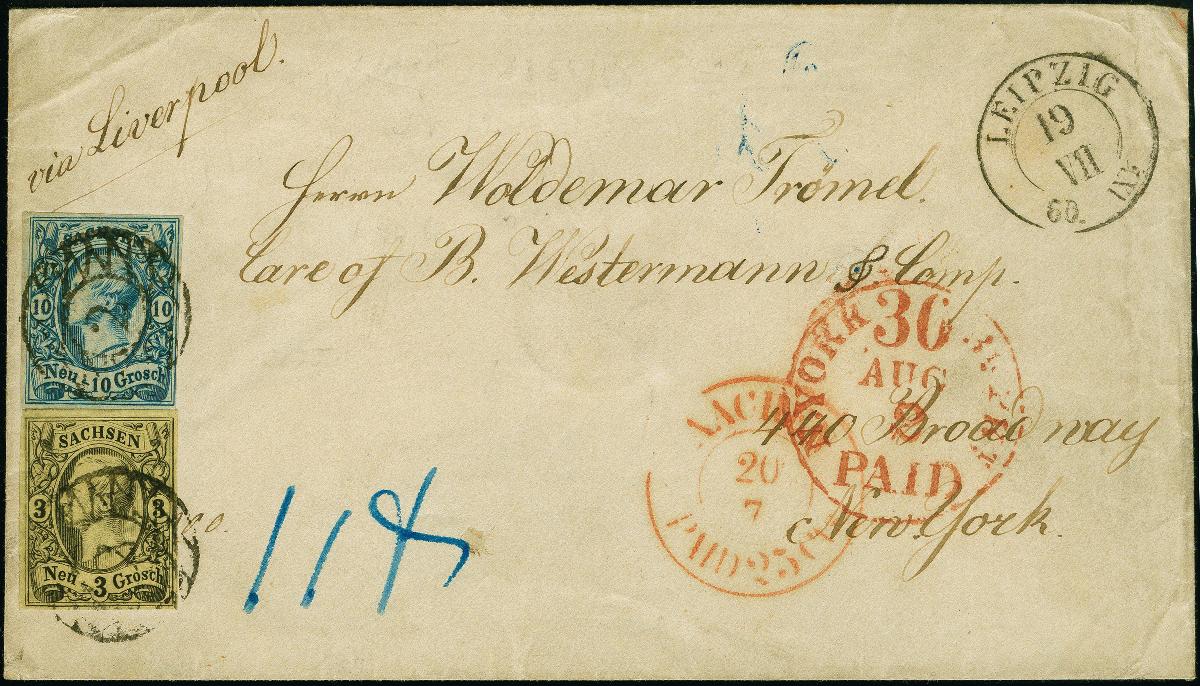 via Liverpool.
LEIPZIG
19
VII
60.
Herrn Woldemar Trömel.
Care of B. Westermann & Comp.
440 Broadway
New York.
SACHSEN
10 10
Neu 10 Grosch
SACHSEN
3 3
Neu 3 Grosch
YORK
30
AUG
PAID
AACHEN
20
7
PAID 25 C